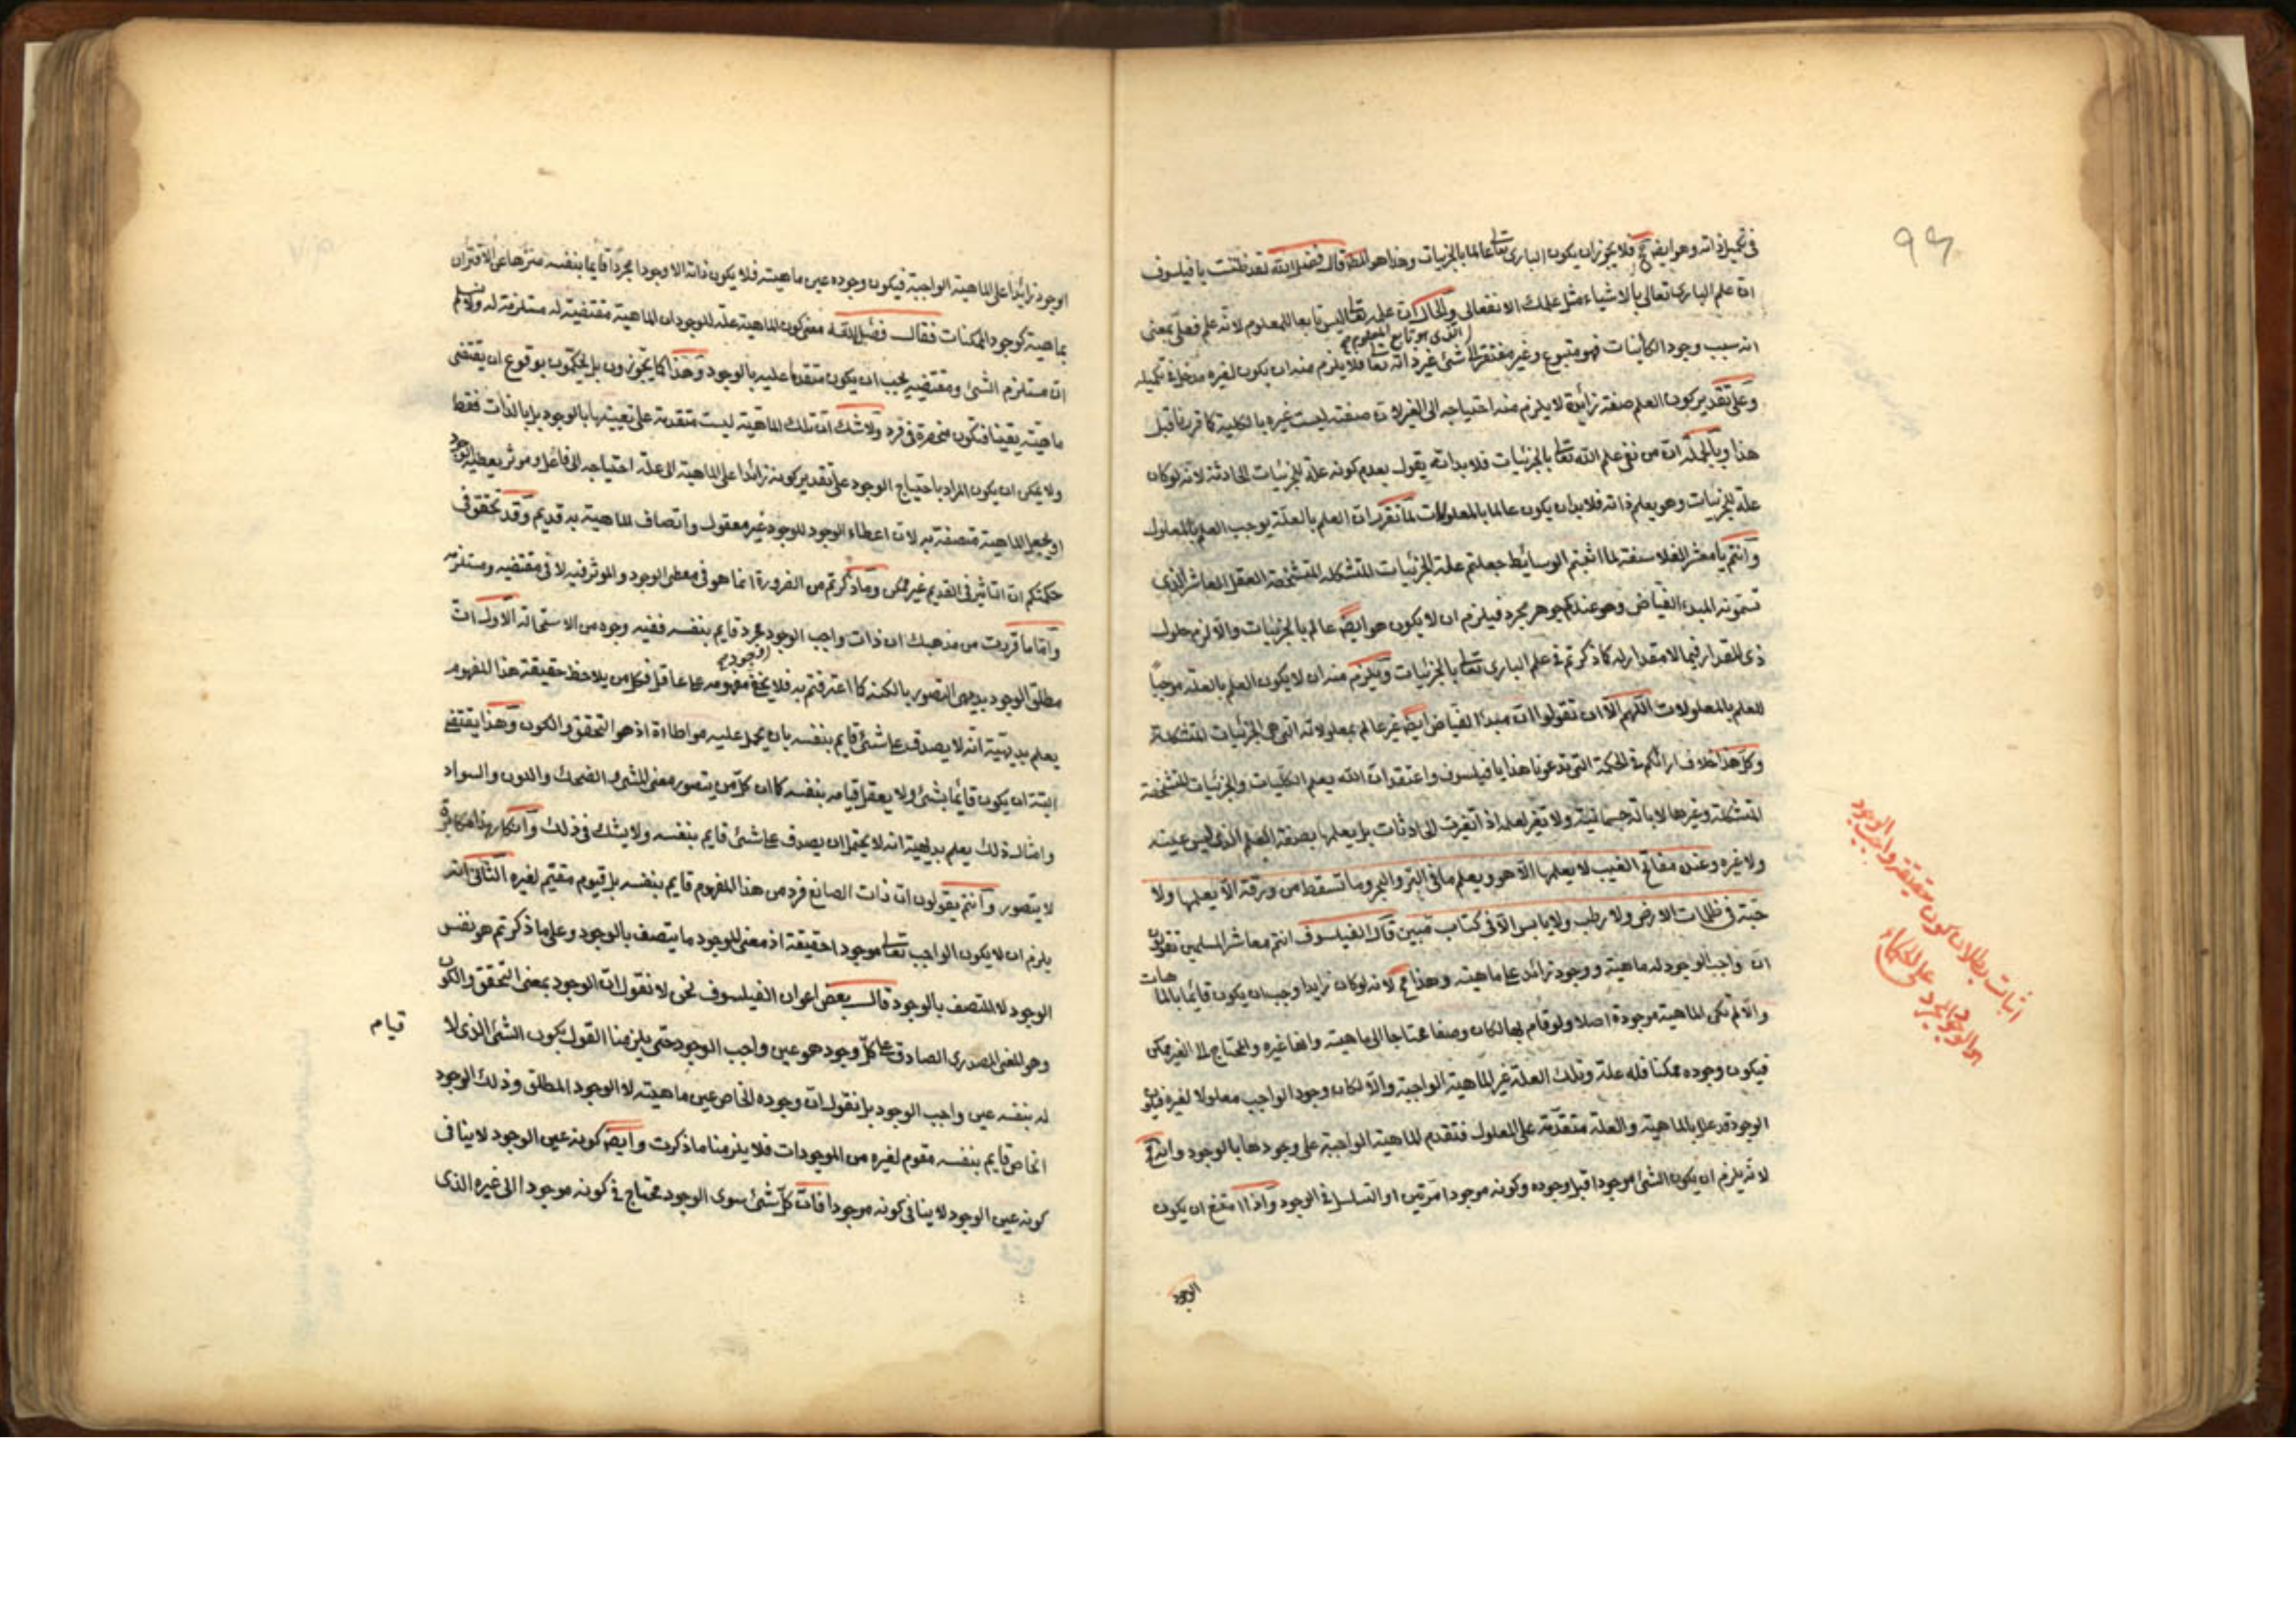 ٩٤
في تكميل ذاته وهو ايض مح فلا يجوز ان يكون البارى تعالى عالما بالجزئيات وهذا هو المط قال فضل الله لقد ظننت يا فيلسوف
ان علم البارى تعالى بالاشياء مثل علمك الانفعالى والحال ان علمه تعالى ليس تابعا للمعلوم لانه علم فعلى بمعنى
الذى هو تابع للمعلوم
انه سبب وجود الكائنات فهو متبوع وغير مفتقر الى شئ غير ذاته تعالى فلا يلزم منه ان يكون لغيره مدخل فى تكميله
وعلى تقدير كون العلم صفة زائدة لا يلزم منه احتياجه الى الغير لان صفته ليست غيره بالكلية كما قررنا قبل
هذا وبالجملة ان من نفى علم الله تعالى بالجزئيات فلا بد انه يقول بعدم كونه علة للجزئيات الحادثة لانه لو كان
علة للجزئيات وهو يعلم ذاته فلا بد ان يكون عالما بالمعلولات لما تقرر ان العلم بالعلة يوجب العلم بالمعلول
وانتم يا معشر الفلاسفة لما اثبتم الوسائط جعلتم علة الجزئيات المتشكلة المتشخصة العقل العاشر الذى
تسمونه المبدء الفياض وهو عندكم جوهر مجرد فيلزم ان لا يكون هو ايض عالم بالجزئيات والا لزم حلول
ذى المقدار فيما لا مقدار له كما ذكرتم فى علم البارى تعالى بالجزئيات ويلزم منه ان لا يكون العلم بالعلة موجبا
للعلم بالمعلولات اللهم الا ان تقولوا ان مبدأ الفياض ايض غير عالم بمعلولاته التى هى الجزئيات المتشكلة
وكل هذا خلاف ارائكم فى الحكمة التى تدعونا هذا يا فيلسوف واعتقد ان الله يعلم الكليات والجزئيات المتشخصة
المتشكلة وغيرها لا بآلة جسمانية ولا تغير لعلمه اذا تغيرت الحادثات بل يعلمها بصفة العلم الذى ليس عينه
ولا غيره وعنده مفاتح الغيب لا يعلمها الا هو ويعلم ما فى البر والبحر وما تسقط من ورقة الا يعلمها ولا
حبة فى ظلمات الارض ولا رطب ولا يابس الا فى كتاب مبين قال الفيلسوف انتم معاشر المسلمين تقولون
ان واجب الوجود له ماهية ووجود زائد على ماهيته وهذا مح لانه لو كان زايدا وجب ان يكون قائما بالماهيات
والا لم تكن الماهية موجودة اصلا ولو قام بها لكان وصفا محتاجا الى ماهيته وانها غيره والمحتاج الى الغير ممكن
فيكون وجوده ممكنا فله علة وتلك العلة غير الماهية الواجبة والا لكان وجود الواجب معلولا لغيره فيكون
الوجود قد علل بالماهية والعلة متقدمة على المعلول فتقدم الماهية الواجبة على وجودها بالوجود وانه مح
لانه يلزم ان يكون الشئ موجودا قبل وجوده وكونه موجودا مرتين او التسلسل فى الوجود واذا امتنع ان يكون
الوجود
اثبات بطلان كون حقيقة واجب الوجود
هو الوجود المجرد على الحكماء
الوجود زائدا على الماهية الواجبة فيكون وجوده عين ماهيته فلا يكون ذاته الا وجودا مجردا قايما بنفسه منزها عن الاقتران
بماهية كوجود الممكنات فقال فضل الله معنى كون الماهية علة للوجود ان الماهية مقتضية له مستلزمة له ولا نسلم
ان مستلزم الشئ ومقتضيه يجب ان يكون متقدما عليه بالوجود وهذا كما يجوزون بل يحكمون بوقوع ان يقتضى
ماهية يقينا فتكون منحصرة فى فرد ولا شك ان تلك الماهية ليست متقدمة على تعيينها بالوجود بل بالذات فقط
ولا يمكن ان يكون المراد باحتياج الوجود على تقدير كونه زائدا على الماهية الى علة احتياجه الى فاعل وموثر يعطيه الوجود
او يجعل الماهية متصفة به لان اعطاء الوجود للوجود غير معقول واتصاف الماهية به قديم وقد تحقق فى
حكمتكم ان التاثير فى القديم غير ممكن وما ذكرتم من الضرورة انما هو فى معطى الوجود والموثر فيه لا فى مقتضيه ومستلزمه
واما ما قررت من مذهبك ان ذات واجب الوجود مجرد قايم بنفسه ففيه وجوه من الاستحالة الاول ان
مطلق الوجود بديهى التصور بالكنه كما اعترفتم به فلا يخفى مفهومه على عاقل فكل من يلاحظ حقيقة هذا المفهوم
يعلم بديهية انه لا يصدق على شئ قايم بنفسه بان يحمل عليه مواطاة اذ هو التحقق والكون وهذا يقتضى
البتة ان يكون قائما بشئ ولا يعقل قيامه بنفسه كما ان كل من يتصور معنى المشى والضحك واللون والسواد
وامثال ذلك يعلم بديهية انه لا يحتمل ان يصدق على شئ قايم بنفسه ولا يشك فى ذلك وانكار هذا مكابرة
لا يتصور وانتم يقولون ان ذات الصانع فرد من هذا المفهوم قايم بنفسه بل قيوم مقيم لغيره الثانى انه
يلزم ان لا يكون الواجب تعالى موجودا حقيقة اذ معنى الموجود ما يتصف بالوجود وعلى ما ذكرتم هو نفس
الوجود لا المتصف بالوجود قال بعض اعوان الفيلسوف نحن لا نقول ان الوجود بمعنى التحقق والكون
وهو المعنى المصدرى الصادق على كل وجود هو عين واجب الوجود حتى يلزمنا القول بكون الشئ الذى لا
قيام
له بنفسه عين واجب الوجود بل نقول ان وجوده الخاص عين ماهيته لا الوجود المطلق وذلك الوجود
الخاص قايم بنفسه مقوم لغيره من الموجودات فلا يلزمنا ما ذكرت وايض كونه عين الوجود لا ينافى
كونه عين الوجود لا ينافى كونه موجودا فان كل شئ سوى الوجود محتاج فى كونه موجودا الى غيره الذى